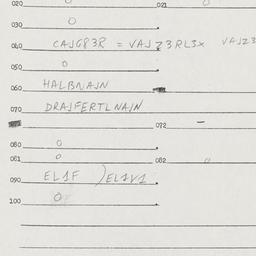 020 021 0
030 0
040 CAJG83R = VAJZ3RL3X VAJZ3
050 0
060 HALBNAJN
070 DRAJFERTLNAJN
072 -
080 0
081 0 082 0
090 EL1F ) EL1V1
100 0